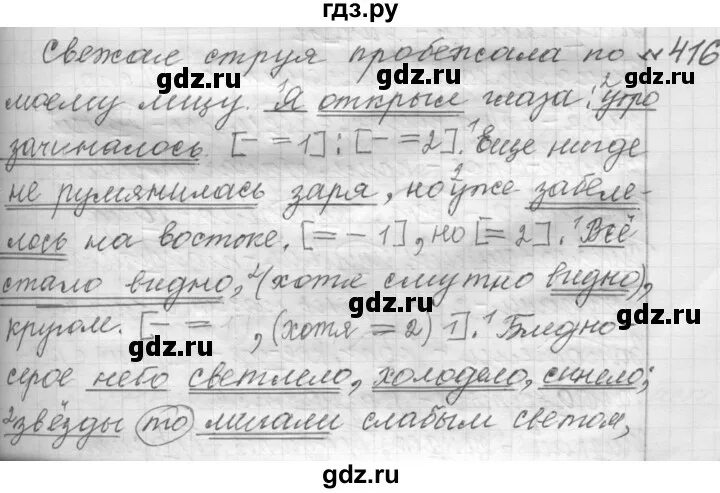 гдз.ру
Свежая струя пробежала по № 416
моему лицу. ¹Я открыл глаза: ²утро
зачиналось. [– = 1]: [– = 2]. ¹Еще нигде
не румянилась заря, но ²уже забеле-
лось на востоке. [= – 1], но [= 2]. ¹Всё
стало видно, ²(хотя смутно видно),
кругом. [– = , (хотя = 2) 1]. ¹Бледно-
серое небо светлело, холодело, синело;
²звёзды то мигали слабым светом,
gdz.ru
gdz.ru
gdz.ru
gdz.ru
gdz.ru
gdz.ru
gdz.ru
gdz.ru
gdz.ru